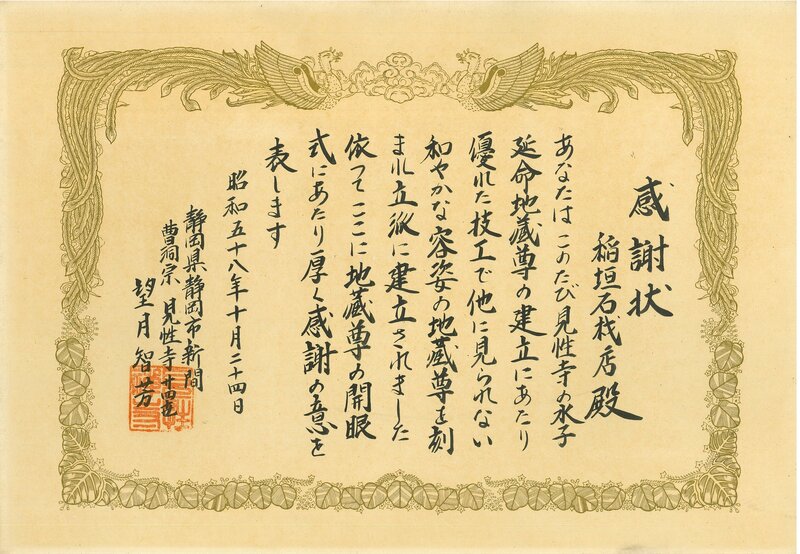 感謝状
稲垣石材店殿
あなたはこのたび見性寺の水子
延命地蔵尊の建立にあたり
優れた技工で他に見られない
和やかな容姿の地蔵尊を刻
まれ立派に建立されました
依つてここに地蔵尊の開眼
式にあたり厚く感謝の意を
表します
昭和五十八年十月二十四日
静岡県静岡市新間
曹洞宗 見性寺十四世
望月智芳